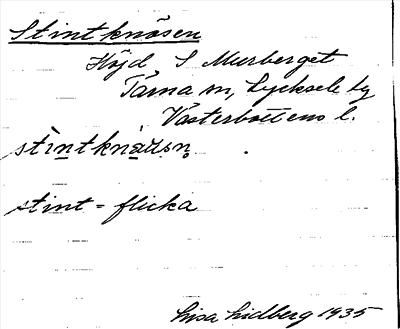 Stintknösen
Höjd S Murberget
Tärna sn, Lycksele tg
Västerbottens l.
stintknäusn.
stint = flicka
Lisa Lidberg 1935